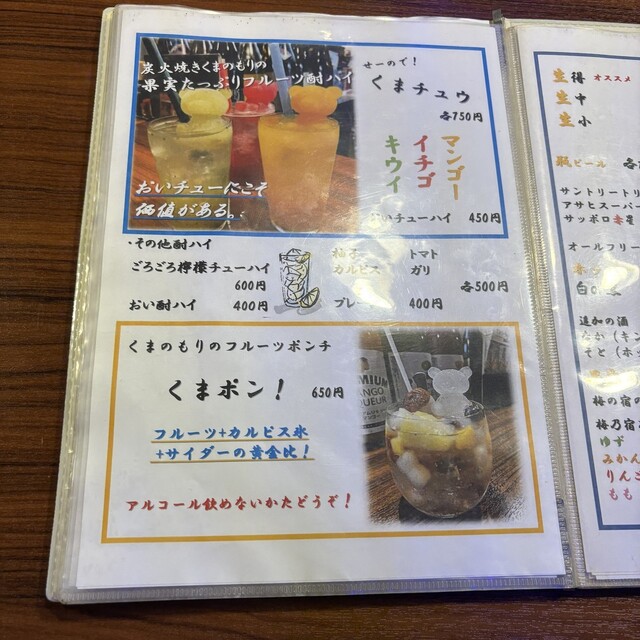 炭火焼きくまのもりの
果実たっぷりフルーツ酎ハイ
おいチューにこそ
価値がある。
せーので！
くまチュウ
各750円
マンゴー
イチゴ
キウイ
おいチューハイ 450円
・その他酎ハイ
ごろごろ檸檬チューハイ
600円
おい酎ハイ 400円
柚子 トマト
カルピス ガリ
各500円
プレーン 400円
くまのもりのフルーツポンチ
くまポン！ 650円
フルーツ+カルピス氷
+サイダーの黄金比！
アルコール飲めないかたどうぞ！
生得 オススメ
生中
生小
瓶ビール
サントリート
アサヒスーパー
サッポロ
オールフリー
白
追加の酒
なか（キン
そと（ホ
梅の宿の
梅乃宿
ゆず
みかん
りんご
もも